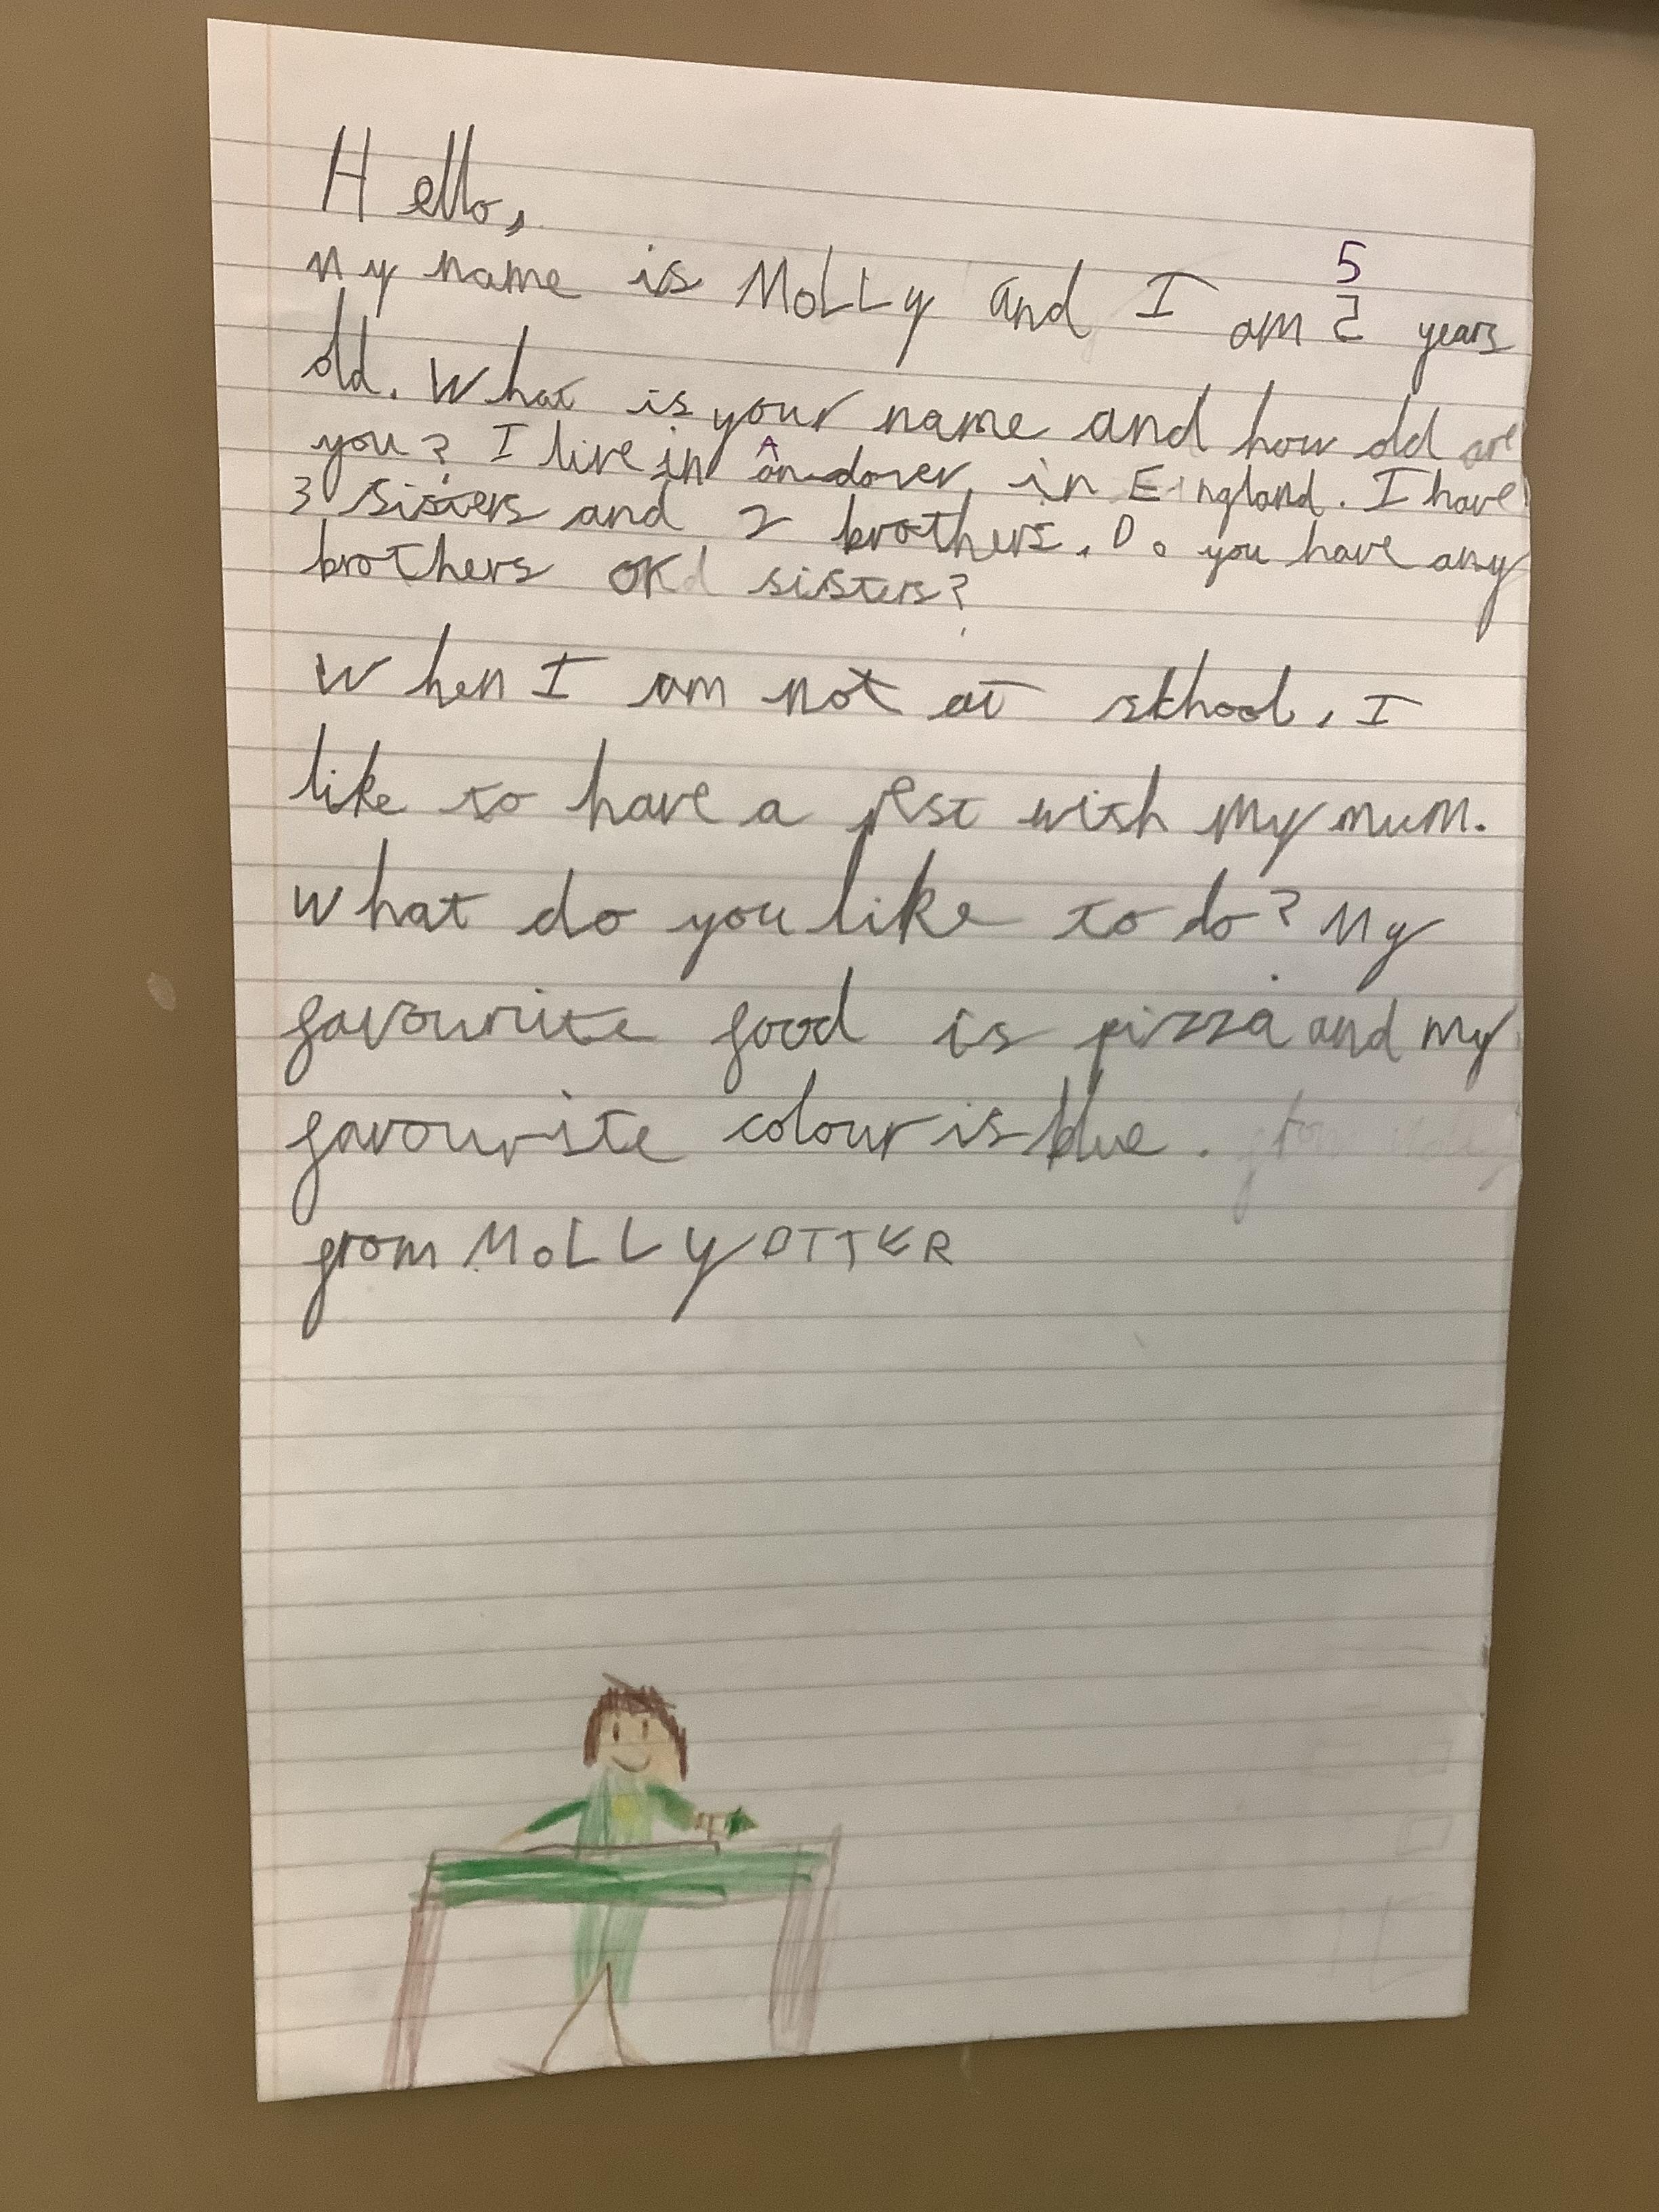 Hello,
5
My name is MoLLy and I am 2 years
old. What is your name and how old are
you? I live in Andover, in England. I have
3 sisters and 2 brothers. Do you have any
brothers OR sisters?
When I am not at skhool, I
like to have a rest with my mum.
What do you like to do? My
favourite food is pizza and my
favourite colour is blue.
from MoLLy OTTER